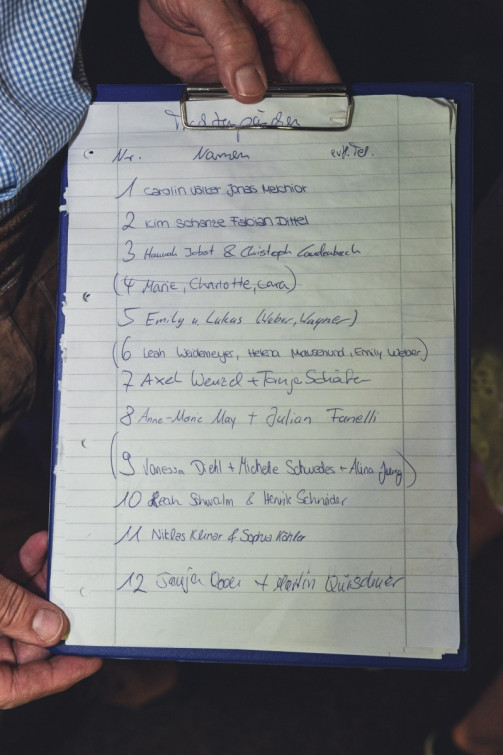 Nr. Namen evtl. Tel.
1 Carolin Völker Jonas Melchior
2 Kim Schanze Fabian Dittel
3 Hannah Jobst & Christoph Laudenbach
(4 Marie, Charlotte, Lara)
5 Emily u. Lukas (Weber, Wagner)
(6 Leah Weidemeyer, Helena Mausehund, Emily Weber)
7 Axel Wenzel + Tanja Schäfer
8 Anne-Marie May + Julian Fanelli
(9 Vanessa Diehl + Michelle Schwedes + Alina Jung)
10 Leah Schwalm & Henrik Schnöder
11 Niklas & Sophia Köhler
12 + Martin